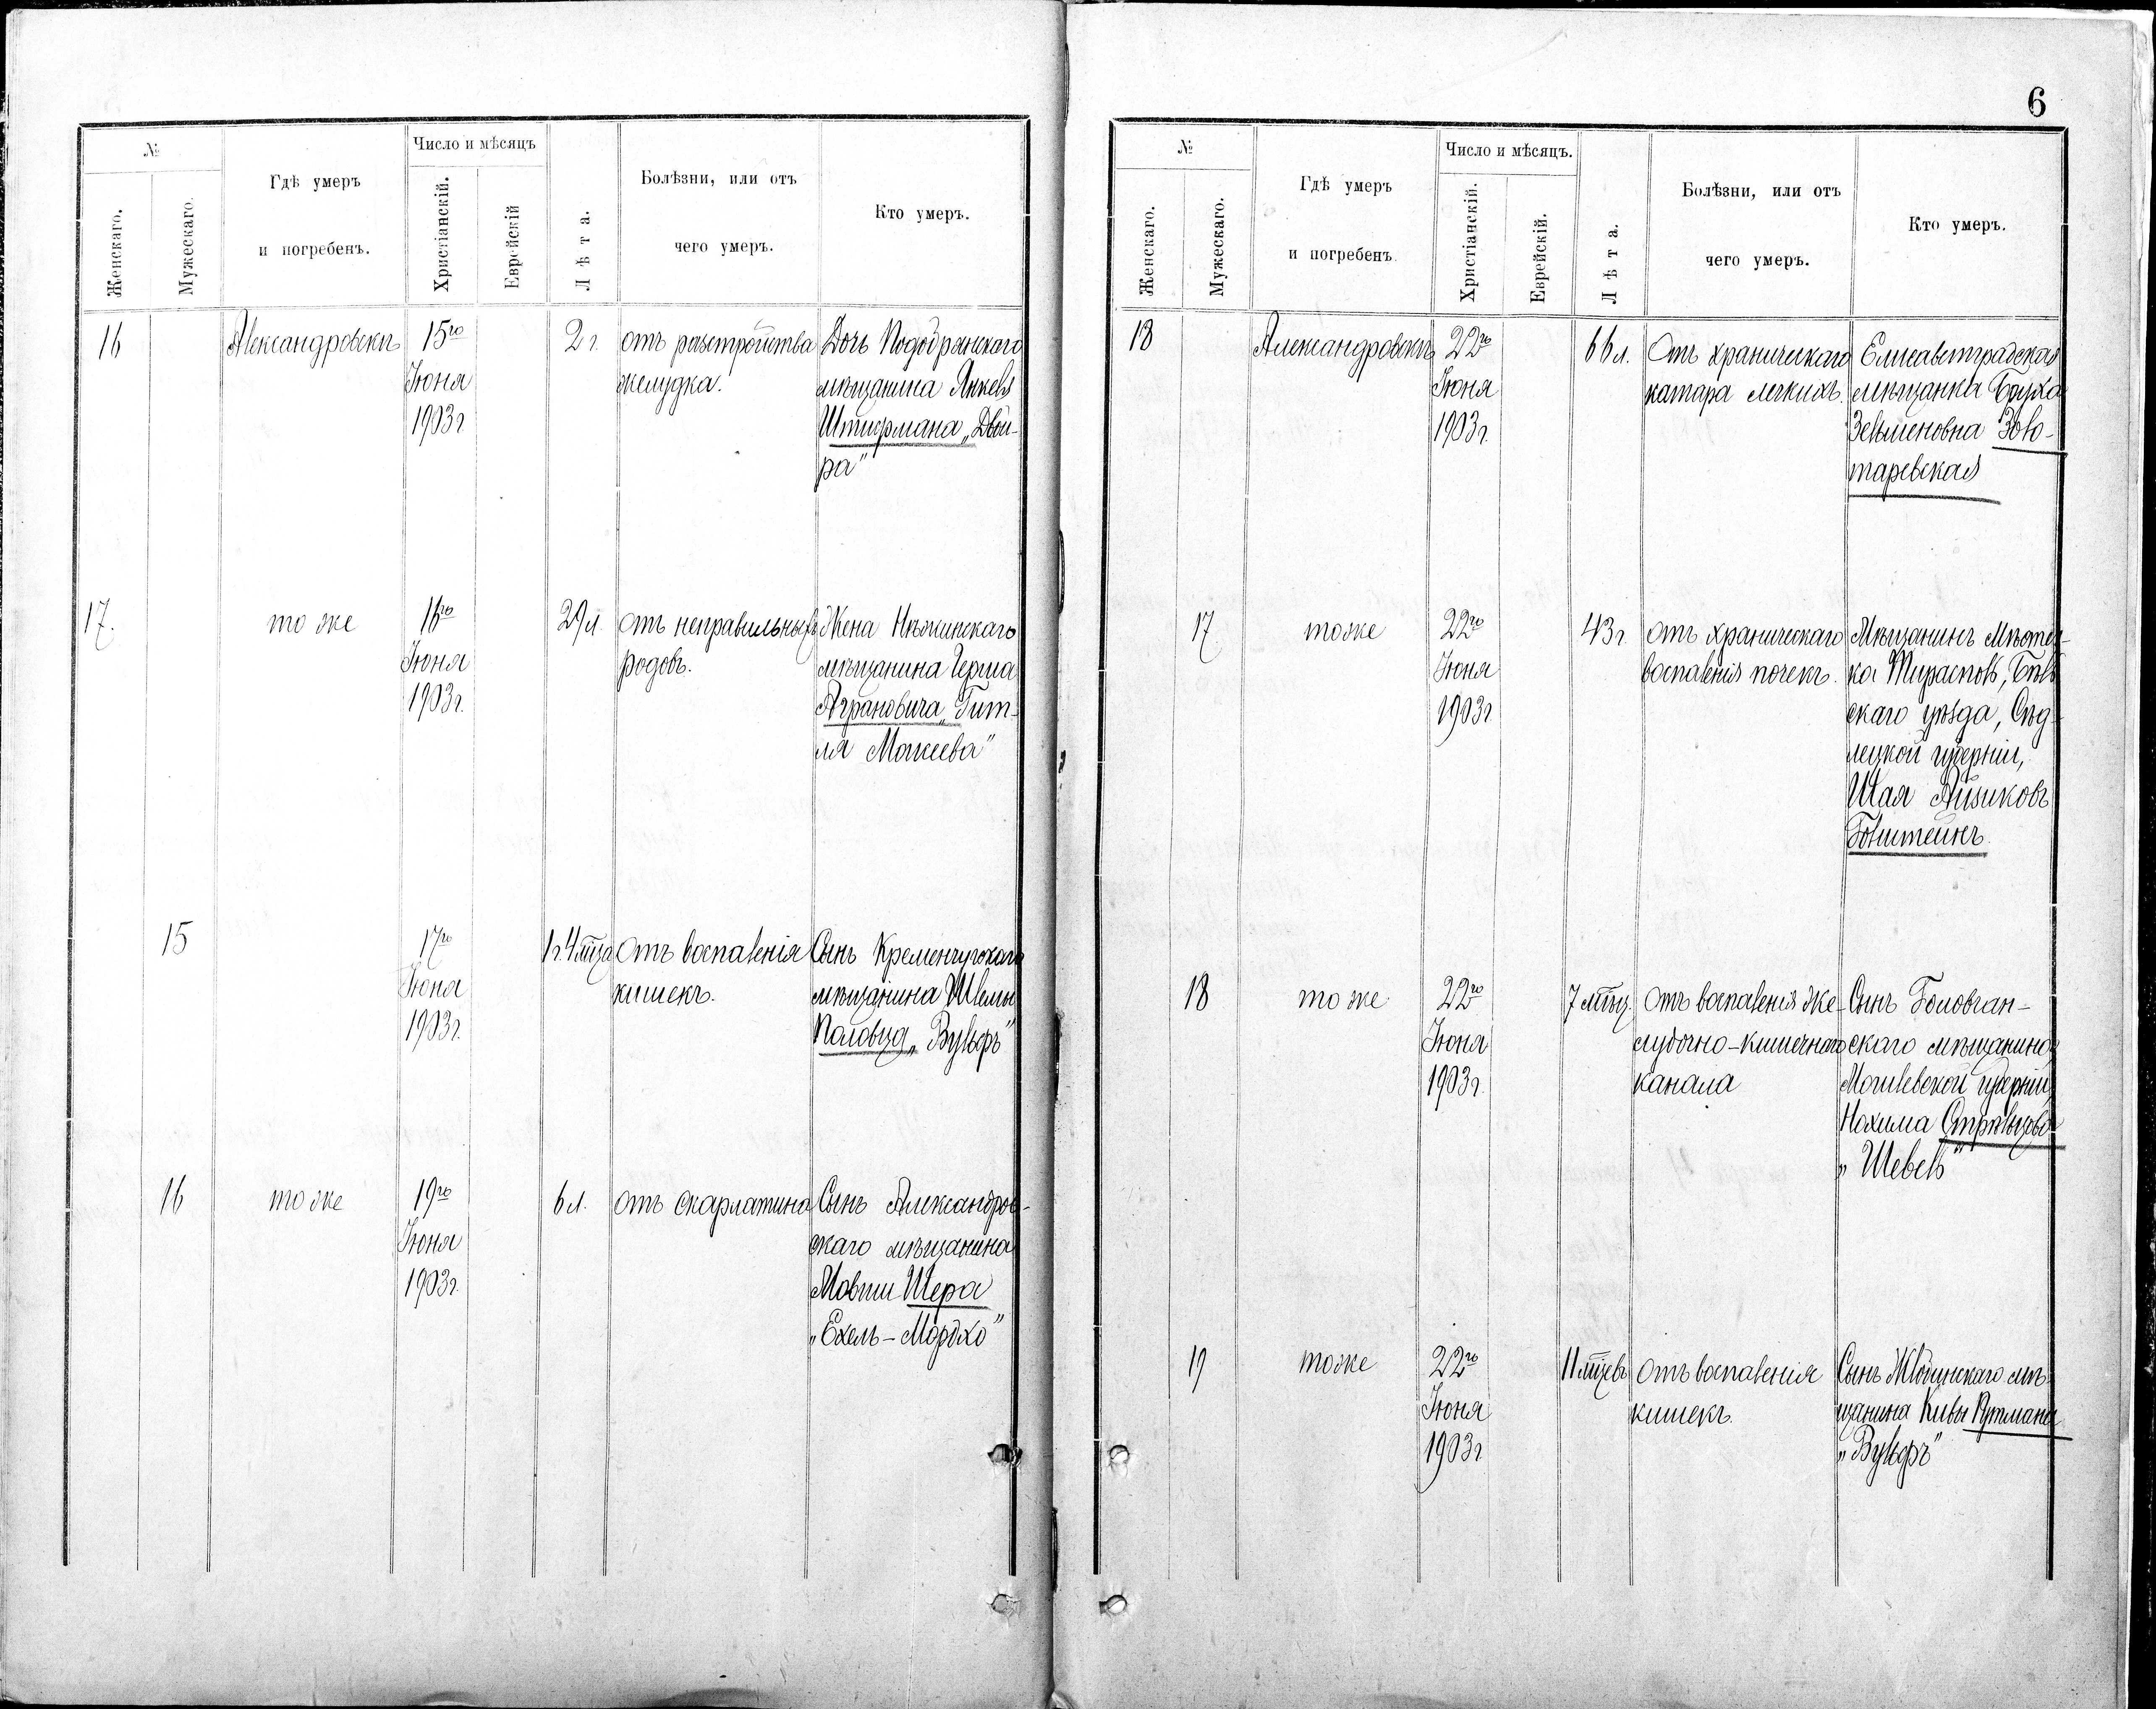 №
Число и мѣсяцъ
Женскаго.
Мужескаго.
Гдѣ умеръ
и погребенъ.
Христіанскій.
Еврейскій
Лѣта.
Болѣзни, или отъ
чего умеръ.
Кто умеръ.
16
Александровскъ
15го
Іюня
1903 г.
2 г.
отъ разстройства
желудка.
Дочь
мѣщанина Янкеля
Штифмана „Двой-
ра"
17.
тоже
16го
Іюня
1903 г.
29 л.
отъ неправильныхъ
родовъ.
Жена Нѣжинскаго
мѣщанина Герша
Аграновича „Гит-
ля Мокеева"
15
17го
Іюня
1903 г.
1 г. 4 мѣца
Отъ воспаленія
кишекъ.
Сынъ Кременчугскаго
мѣщанина Шлемы
Половца „Вульфъ"
16
тоже
19го
Іюня
1903 г.
6 л.
отъ скарлатина
Сынъ Александров-
скаго мѣщанина
Мовши Шера
„Ехель-Мордко"
6
№
Число и мѣсяцъ.
Женскаго.
Мужескаго.
Гдѣ умеръ
и погребенъ.
Христіанскій.
Еврейскій.
Лѣта.
Болѣзни, или отъ
чего умеръ.
Кто умеръ.
18
Александровскъ
22го
Іюня
1903 г.
66 л.
Отъ храническаго
катара легкихъ.
Елисаветградская
мѣщанка Бруха
Зельменовна Золо-
таревская
17
тоже
22го
Іюня
1903 г.
43 г.
отъ храническаго
воспаленія почекъ.
Мѣщанинъ Мѣстеч-
ка Тирасполь, Бѣль
скаго уѣзда, Сѣд-
лецкой губерніи,
Шая Айзиковъ
18
тоже
22го
Іюня
1903 г.
7 мѣц.
Отъ воспаленія же-
лудочно-кишечнаго
канала
Сынъ Головчан-
скаго мѣщанина
Могилевской губерніи,
Нохима Стрѣльцова
„Шевель"
19
тоже
22го
Іюня
1903 г.
11 мѣцевъ
отъ воспаленія
кишекъ.
Сынъ мѣ-
щанина Кивы
„Вульфъ"